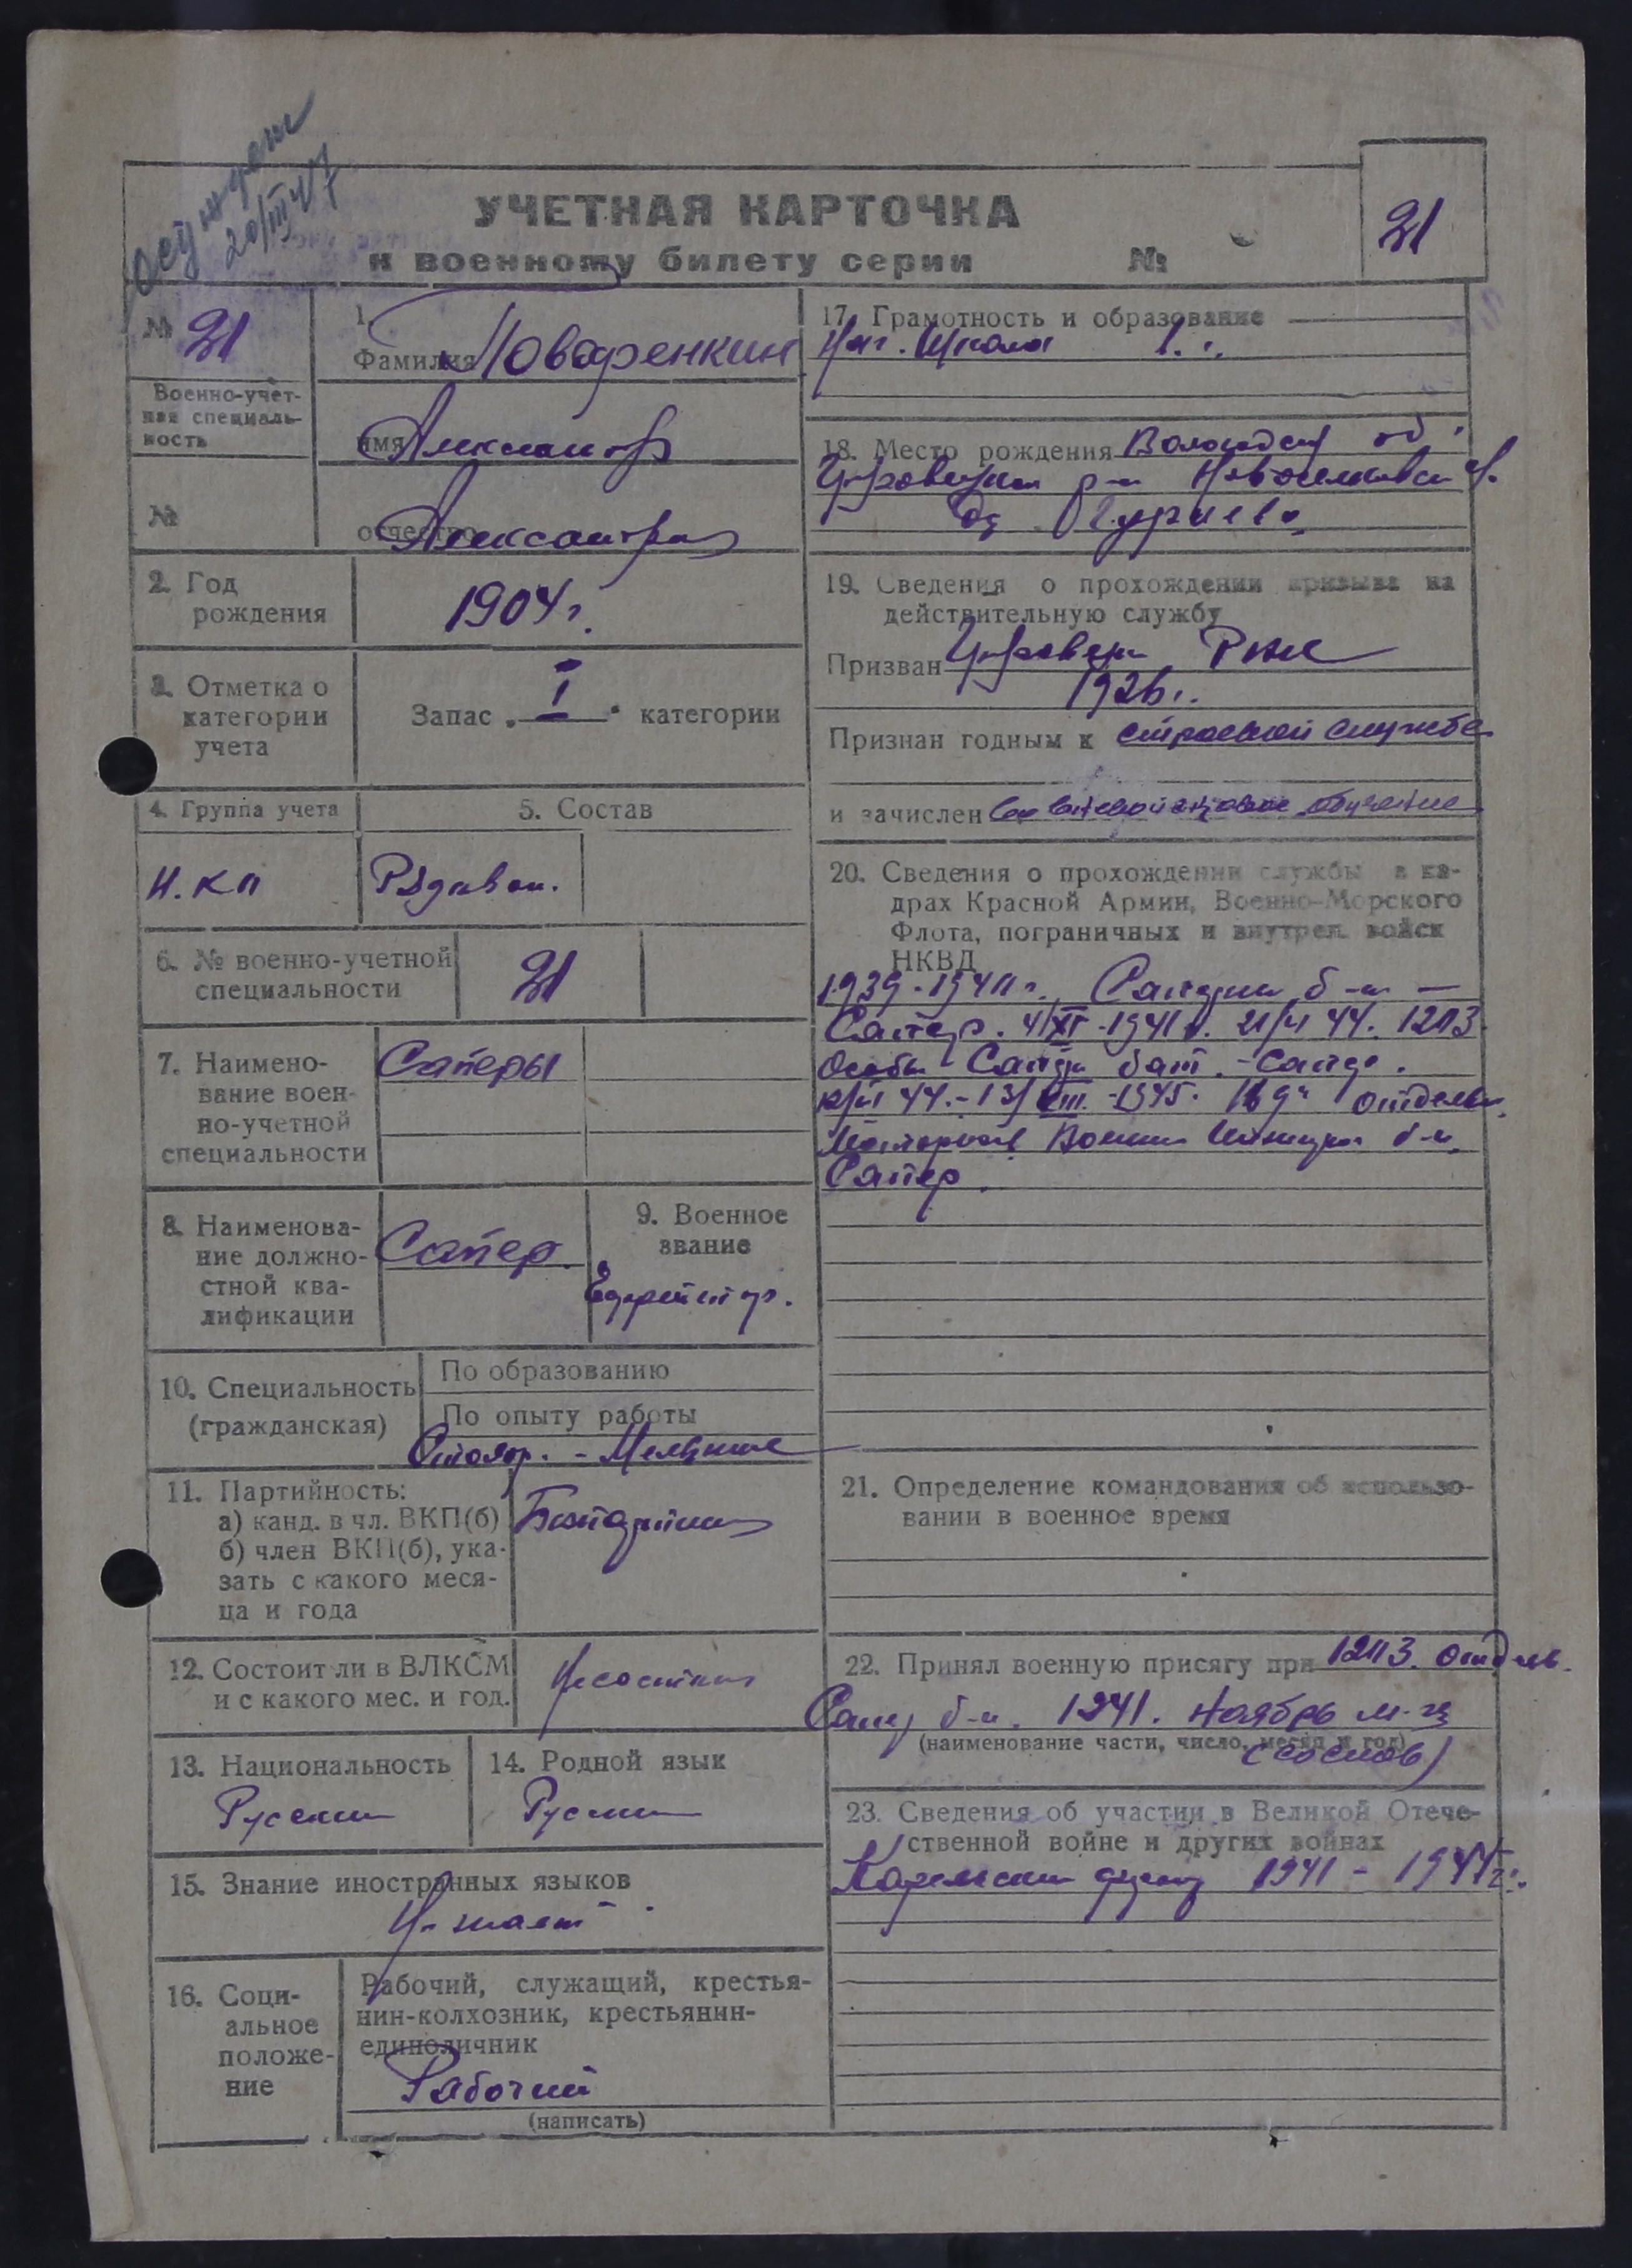 Осужден
20/III 47 г
УЧЕТНАЯ КАРТОЧКА
к военному билету серии №
21
№ 21
Военно-учет-
ная специаль-
ность
№
1.
Фамилия Поваренкин
имя Александр
отчество Александров
2. Год
рождения
1904 г.
3. Отметка о
категории
учета
Запас „ I “ категории
4. Группа учета
5. Состав
Рядовой.
6. № военно-учетной
специальности
21
7. Наимено-
вание воен-
но-учетной
специальности
Саперы
8. Наименова-
ние должно-
стной ква-
лификации
Сапер.
9. Военное
звание
Ефрейтор.
10. Специальность
(гражданская)
По образованию
По опыту работы
Столяр. -
11. Партийность:
а) канд. в чл. ВКП(б)
б) член ВКП(б), ука-
зать с какого меся-
ца и года
Безпартийн
12. Состоит ли в ВЛКСМ
и с какого мес. и год.
Несостоит
13. Национальность
Русский
14. Родной язык
Русский
15. Знание иностранных языков
Не знает
16. Соци-
альное
положе-
ние
Рабочий, служащий, крестья-
нин-колхозник, крестьянин-
единоличник
Рабочий
(написать)
17. Грамотность и образование
Нач. Школа
18. Место рождения Вологодск об.
р-н
д.
19. Сведения о прохождении призыва на
действительную службу
Призван РВК
1926 г.
Признан годным к строевой службе
и зачислен обучение
20. Сведения о прохождении службы в ка-
драх Красной Армии, Военно-Морского
Флота, пограничных и внутрен. войск
НКВД
1939-1940 г. Саперн б-н —
Сапер. 4/XI-1941 г. 44. 1213
Особы Сапер бат. - Сапер.
44. - 13/VIII.-1945. отдельн.
Моторизов Военно Инженерн б-н.
Сапер.
21. Определение командования об использо-
вании в военное время
22. Принял военную присягу при 1213. отдельн.
Сапер б-н. 1941. Ноябрь м-ц
(наименование части, число, месяц и год)
(со слов)
23. Сведения об участии в Великой Отече-
ственной войне и других войнах
Карельский фронт 1941 - 1944 г.